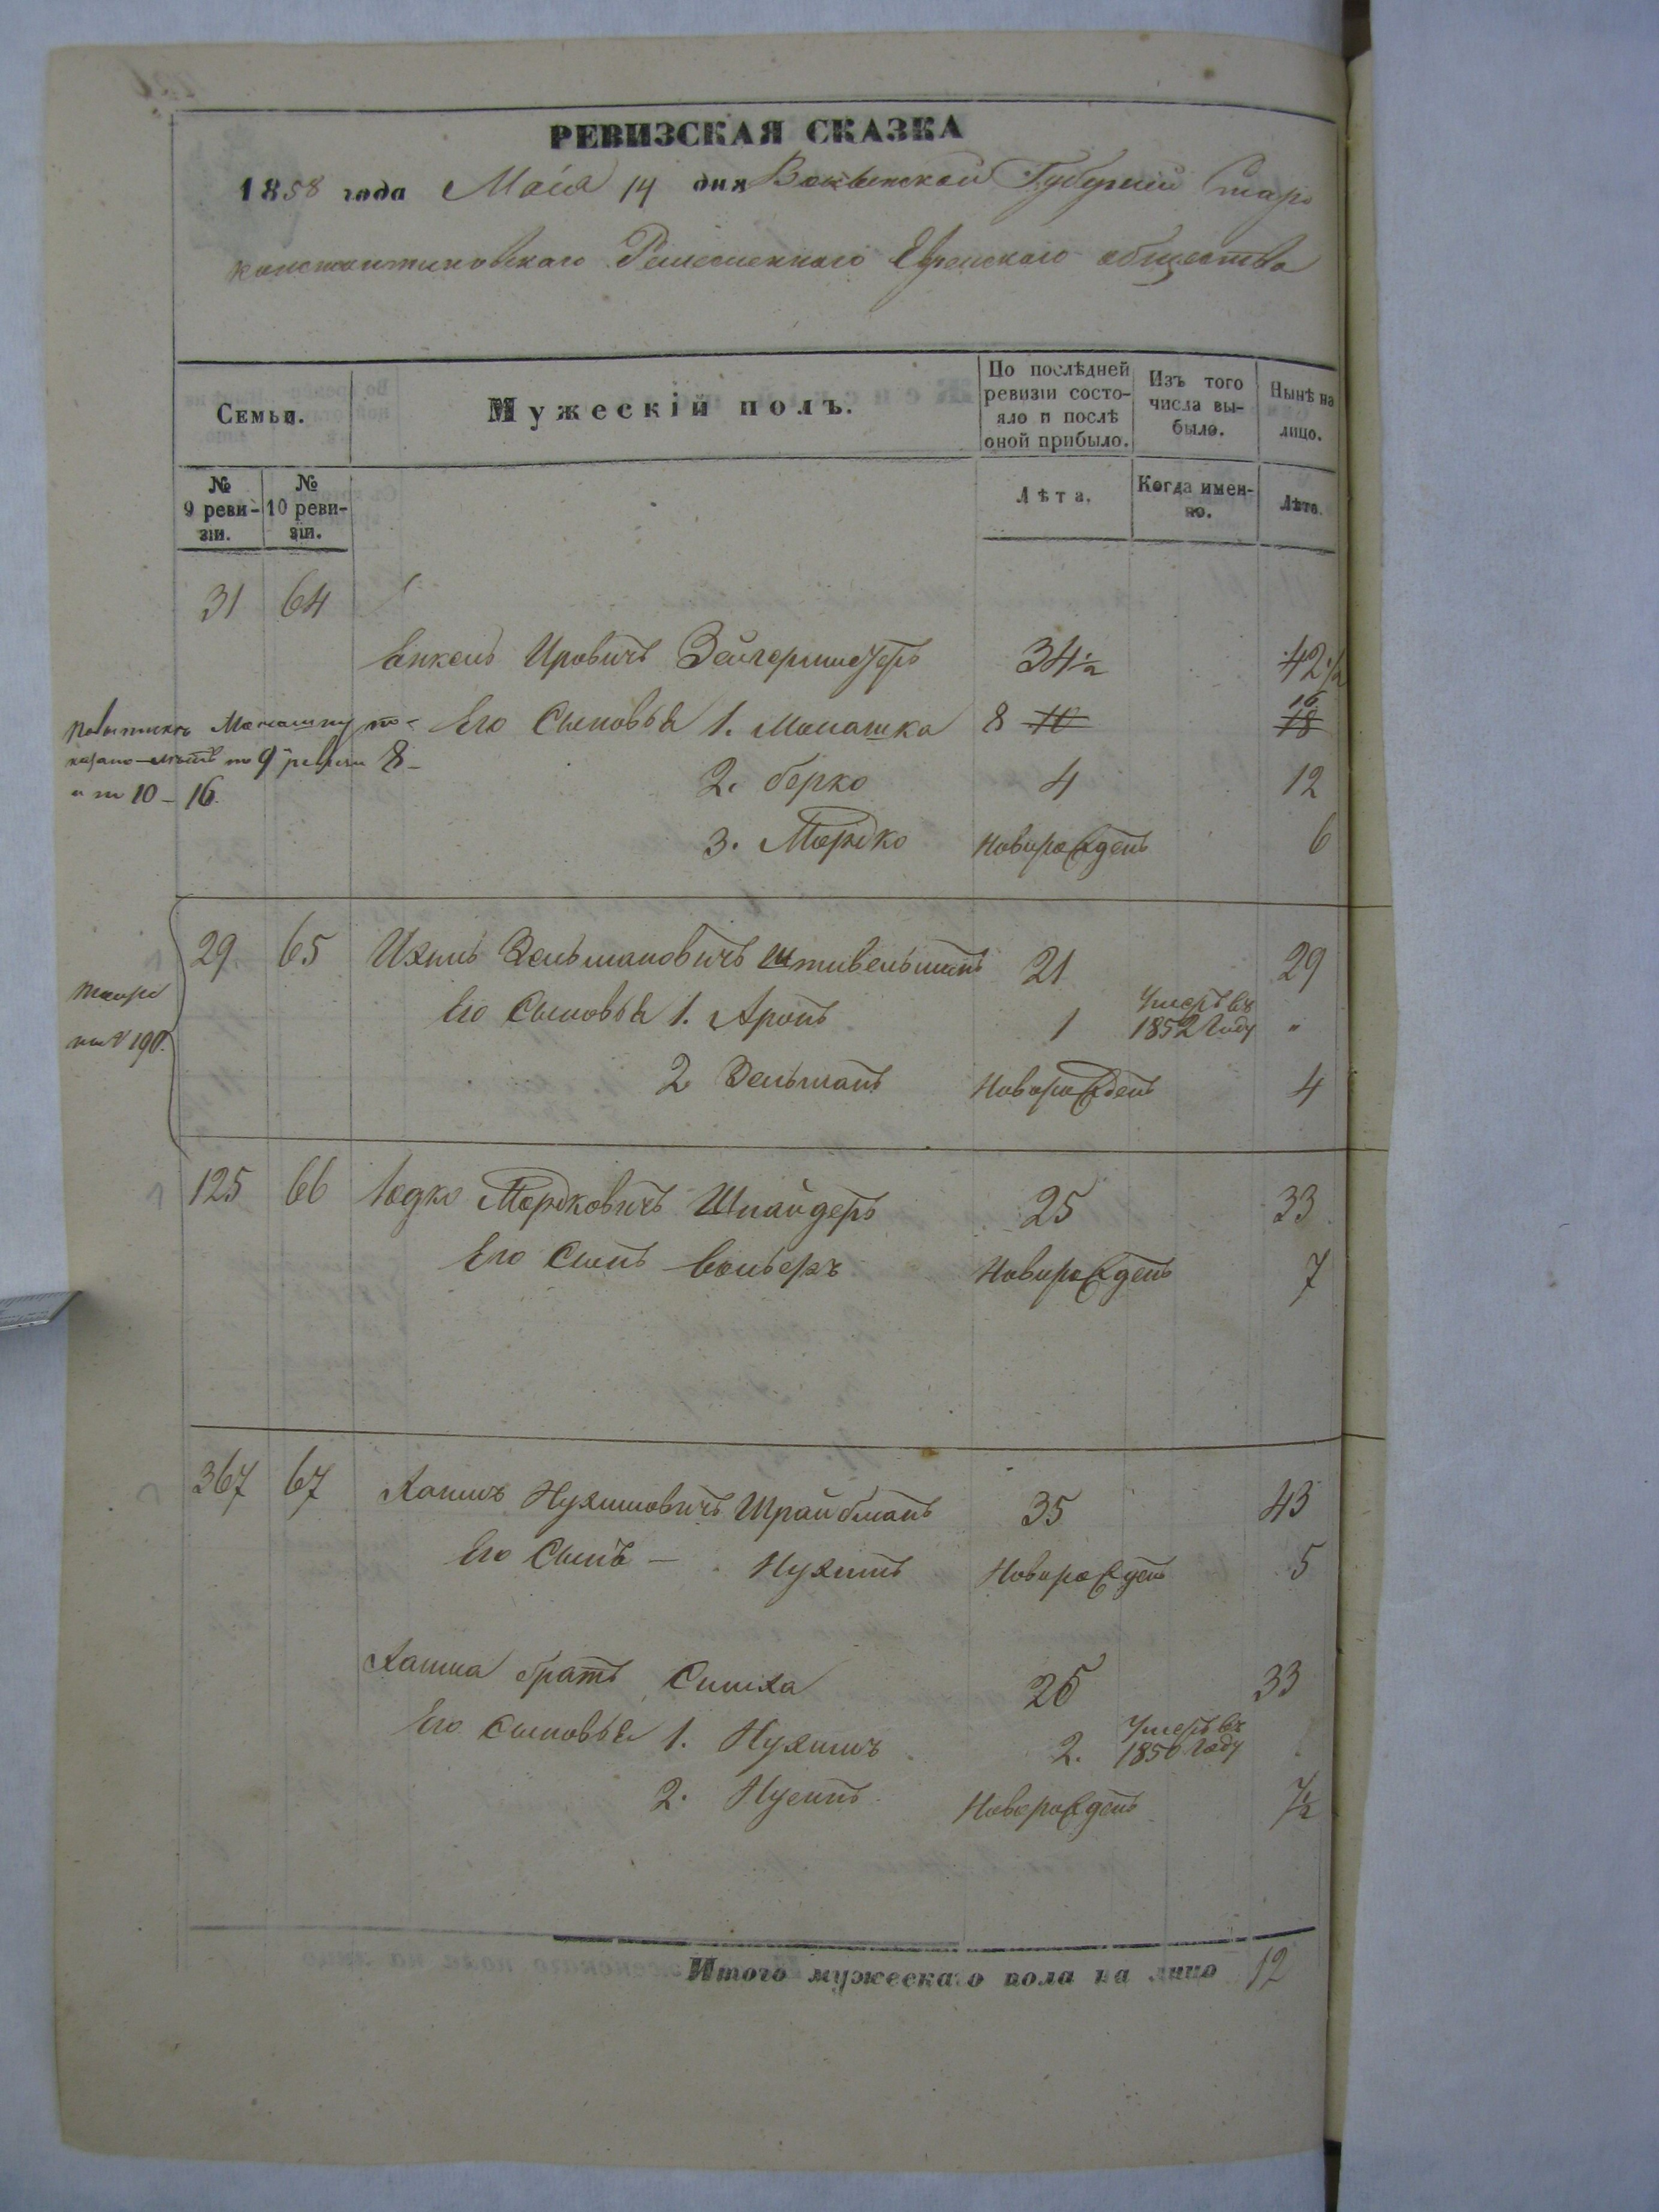 РЕВИЗСКАЯ СКАЗКА
1858 года Маія 14 дня Волынской Губерніи Старо
константиновскаго Ремесленнаго Еврейскаго общества
Семьи.
Мужескій полъ.
По послѣдней ревизіи состояло и послѣ оной прибыло.
Изъ того числа выбыло.
Нынѣ на лицо.
№ 9 ревизіи.
№ 10 ревизіи.
Лѣта.
Когда именно.
Лѣта.
31 64
Янкель Ировичъ 34½ 42½
Его Сыновья 1. Манашка 8 10 16 18
по 9 ревизіи 8
и по 10 – 16.
2. Берко 4 12
3. Мордко Новорожденъ 6
29 65 Ихиль Зельмановичъ 21 29
№ 190.
Его Сыновья 1. Аронъ 1 Умеръ въ 1852 Году "
2 Зельманъ Новорожденъ 4
125 66 Юдко Мордковичъ Шнайдеръ 25 33
Его Сынъ Вольфъ Новорожденъ 7
367 67 Хаимъ Нухимовичъ Шрайбманъ 35 43
Его Сынъ – Нухимъ Новорожденъ 5
Хаима братъ Симха 25 33
Его Сыновья 1. Нухимъ 2. Умеръ въ 1850 Году
2. Нусинъ Новорожденъ ½
Итого мужескаго пола на лицо 12